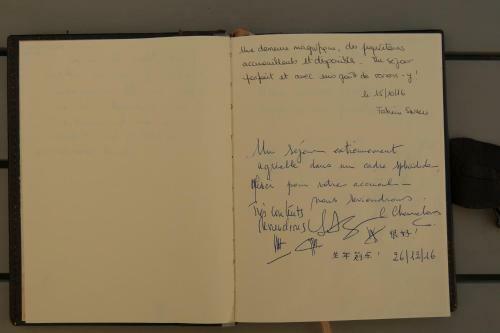 Une demeure magnifique, des propriétaires
accueillants et disponibles. Un séjour
parfait et avec un goût de revenons-y !
le 15/10/16
Un séjour extrêmement
agréable dans un cadre splendide
Merci pour votre accueil —
nous reviendrons.
Très contents
reviendrons
26/12/16